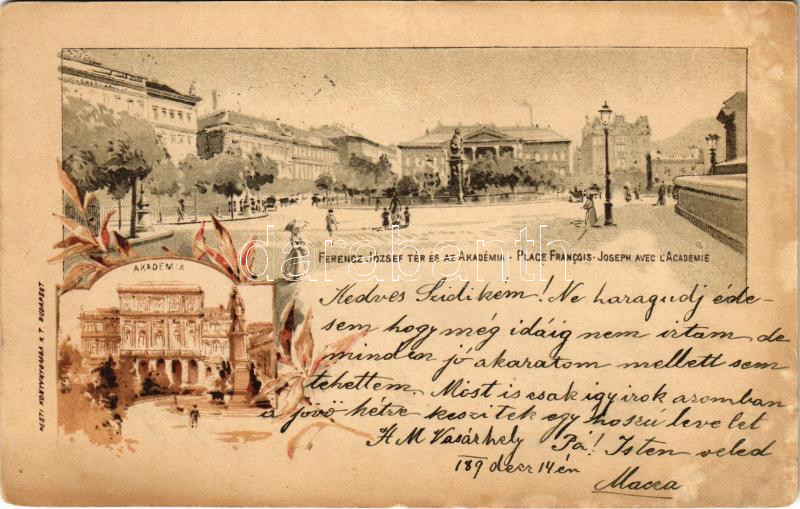 FERENCZ-JÓZSEF TÉR ÉS AZ AKADÉMIA · PLACE FRANÇOIS-JOSEPH AVEC L'ACADEMIE
darabanth
.com
AKADÉMIA
PESTI KÖNYVNYOMDA R.T. BUDAPEST
Kedves Szidikém! Ne haragudj éde-
sem hogy még idáig nem irtam de
minden jó akaratom mellett sem
tehettem. Most is csak igy irok azomban
a jövö hétre keszitek egy hoszú levelet
H M Vasárhely Pá! Isten veled
189 decz 14 én